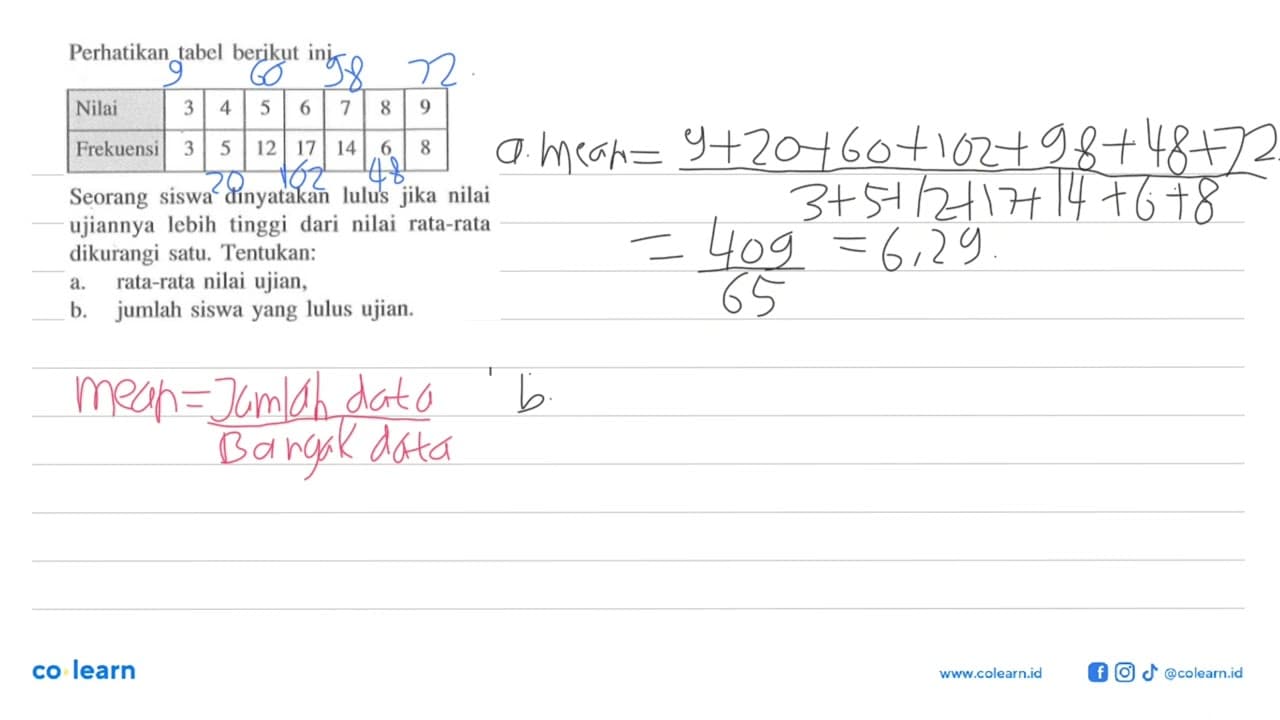 Perhatikan tabel berikut ini.
9 60 98 72
Nilai 3 4 5 6 7 8 9
Frekuensi 3 5 12 17 14 6 8
20 102 48
Seorang siswa dinyatakan lulus jika nilai
ujiannya lebih tinggi dari nilai rata-rata
dikurangi satu. Tentukan:
a. rata-rata nilai ujian,
b. jumlah siswa yang lulus ujian.
a. mean = 9+20+60+102+98+48+72
3+5+12+17+14+6+8
= 409 = 6,29.
65
mean = Jumlah data
Banyak data
b.
co learn
www.colearn.id @colearn.id